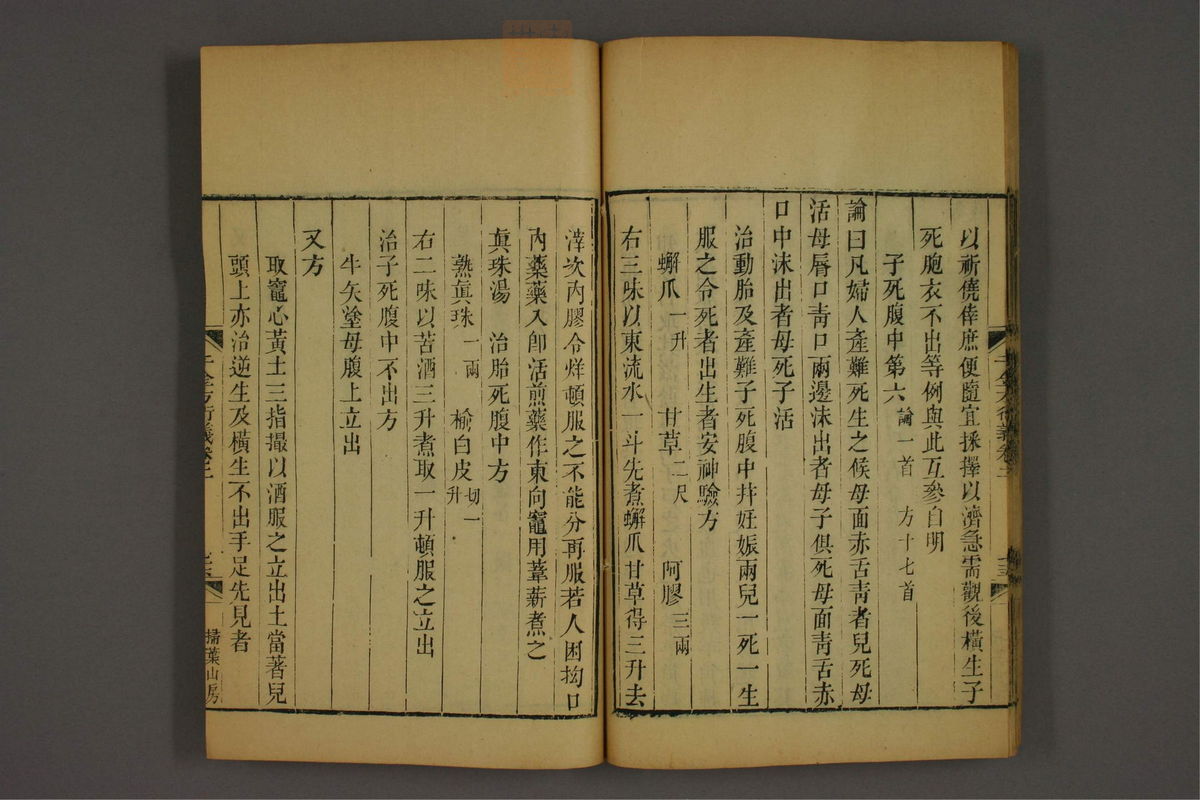 以祈僥倖庶便隨宜採擇以濟急需觀後橫生子
死胞衣不出等例與此互參自明
子死腹中第六 論一首 方十七首
論曰凡婦人產難死生之候母面赤舌青者兒死母
活母唇口青口兩邊沫出者母子俱死母面青舌赤
口中沫出者母死子活
治動胎及產難子死腹中并妊娠兩兒一死一生
服之令死者出生者安神驗方
蠏爪一升 甘草二尺 阿膠三兩
右三味以東流水一斗先煮蠏爪甘草得三升去
滓次內膠令烊頓服之不能分再服若人困拗口
內藥藥入即活煎藥作東向竈用葦薪煮之
真珠湯 治胎死腹中方
熟真珠一兩 榆白皮切一升
右二味以苦酒三升煮取一升頓服之立出
治子死腹中不出方
牛矢塗母腹上立出
又方
取竈心黃土三指撮以酒服之立出土當著兒
頭上亦治逆生及橫生不出手足先見者
千金方衍義卷二
掃葉山房